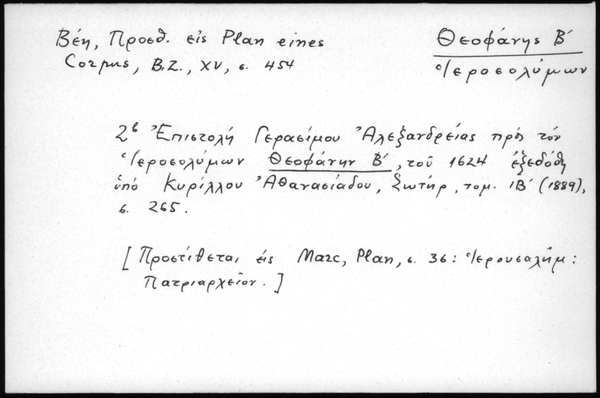 Βέη, Προσθ. εἰς Plan eines
Corpus, B.Z., XV, σ. 454
Θεοφάνης Β΄
Ἱεροσολύμων
Ἐπιστολή Γερασίμου Ἀλεξανδρείας πρός τόν
Ἱεροσολύμων Θεοφάνην Β΄, τοῦ 1624 ἐξεδόθη
ὑπό Κυρίλλου Ἀθανασιάδου, Σωτήρ, τομ. ΙΒ΄ (1889),
σ. 265.
[Προστίθεται εἰς Marc, Plan, σ. 36: Ἱερουσαλήμ:
Πατριαρχεῖον.]